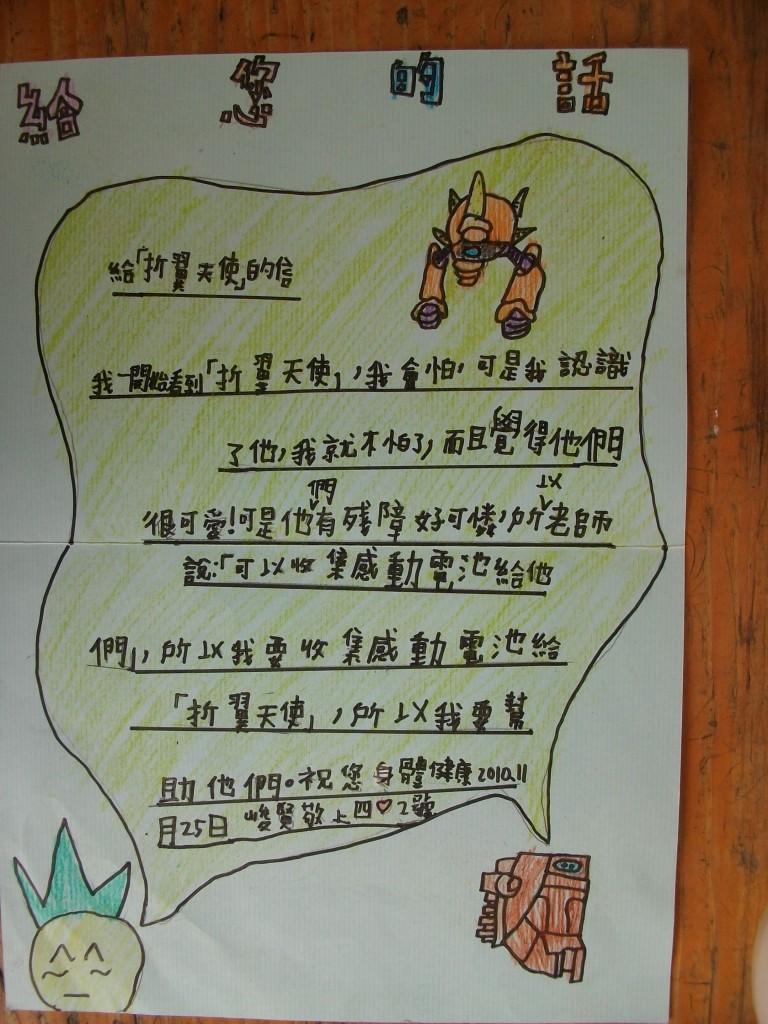 給您的話
給「折翼天使」的信
我一開始看到「折翼天使」,我會怕,可是我認識
了他,我就不怕了,而且覺得他們
很可愛!可是他們有残障好可憐,所以老師
說:「可以收集感動電池給他
們」,所以我要收集感動電池給
「折翼天使」,所以我要幫
助他們。祝您身體健康2010.11
月25日 峻賢敬上四♡2號